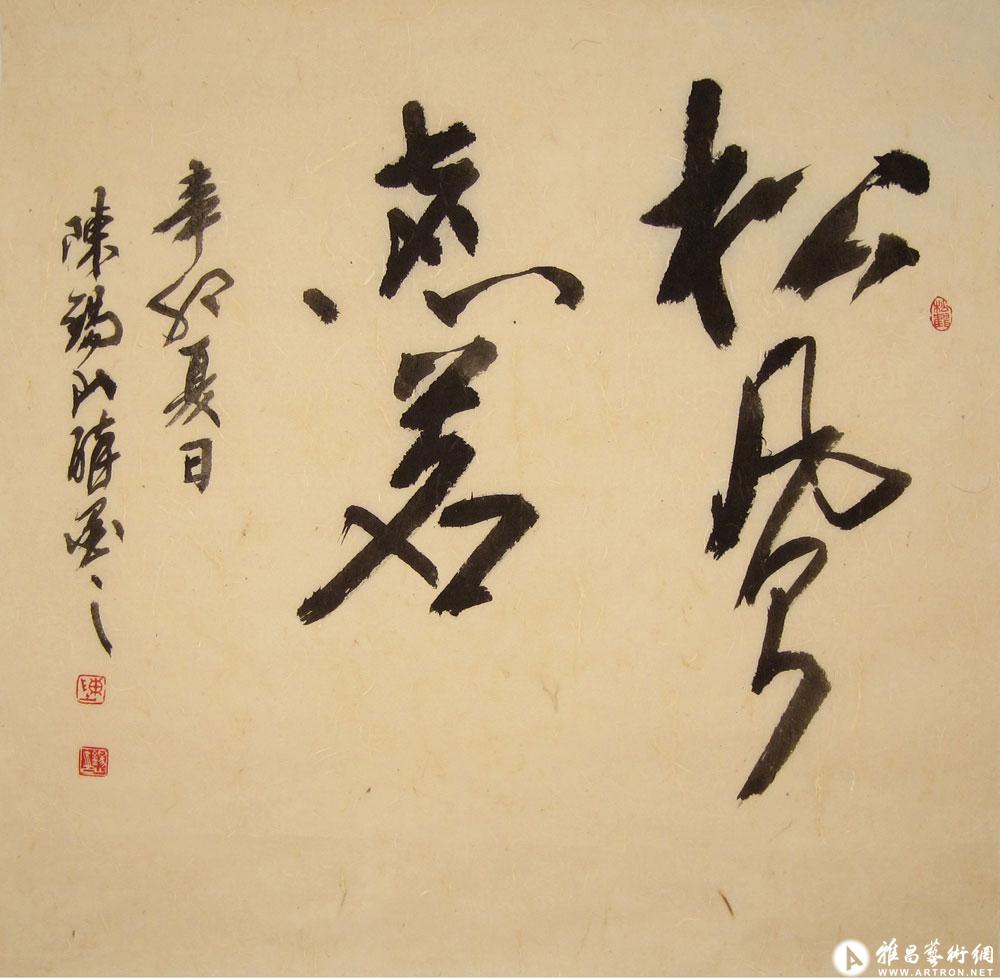 松風
煮茗
辛卯夏日
陳錫山醉墨
雅昌藝術網
WWW.ARTRON.NET